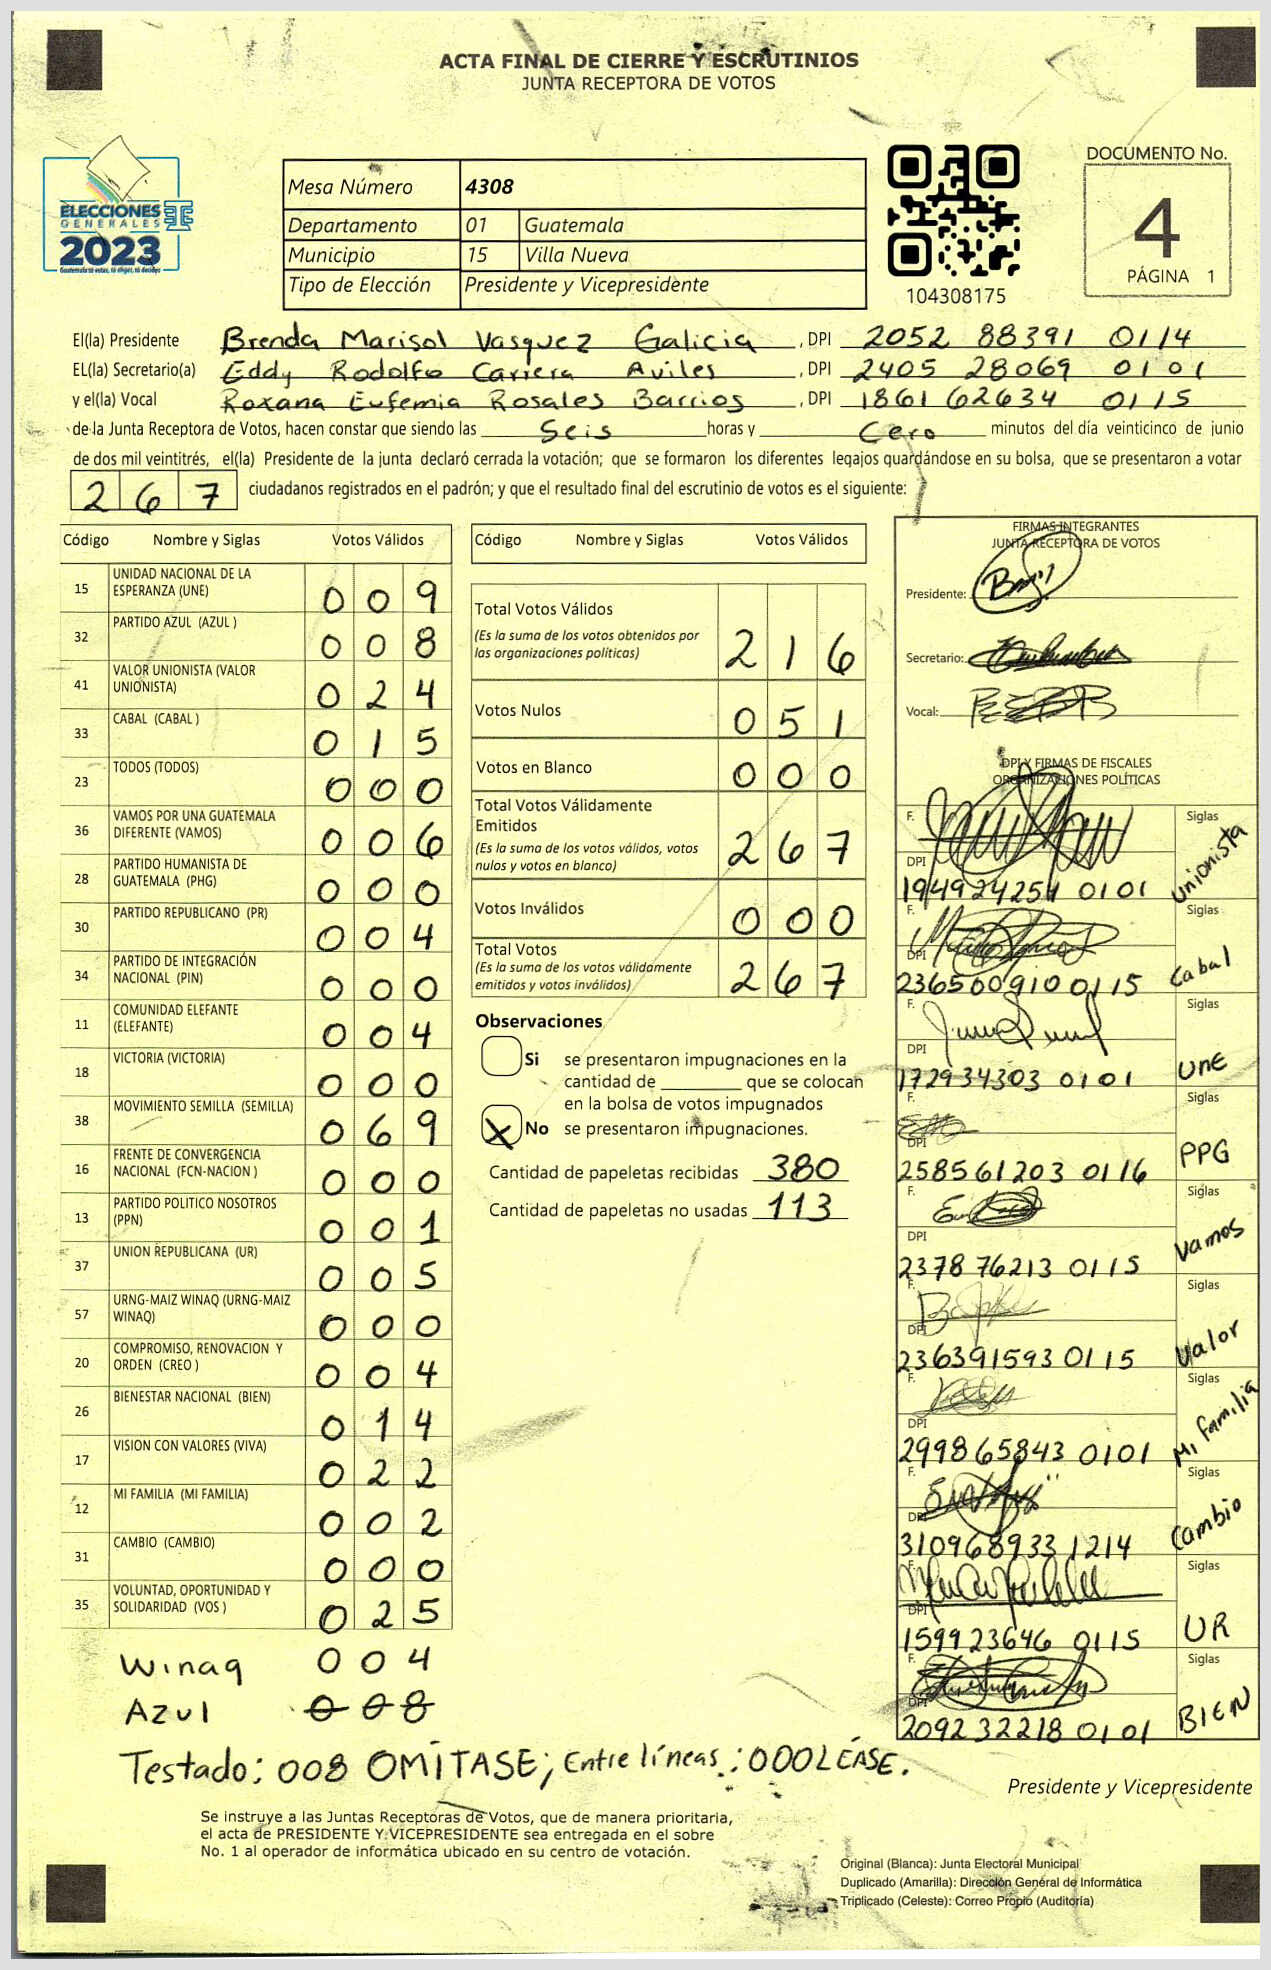 ACTA FINAL DE CIERRE Y ESCRUTINIOS
JUNTA RECEPTORA DE VOTOS
ELECCIONES
GENERALES
2023
Guatemala tú votas, tú eliges, tú decides
Mesa Número 4308
Departamento 01 Guatemala
Municipio 15 Villa Nueva
Tipo de Elección Presidente y Vicepresidente
104308175
DOCUMENTO No.
4
PÁGINA 1
El(la) Presidente Brenda Marisol Vasquez Galicia , DPI 2052 88391 0114
EL(la) Secretario(a) Eddy Rodolfo Carrera Aviles , DPI 2405 28069 0101
y el(la) Vocal Roxana Eufemia Rosales Barrios , DPI 1861 62634 0115
de la Junta Receptora de Votos, hacen constar que siendo las Seis horas y Cero minutos del día veinticinco de junio
de dos mil veintitrés, el(la) Presidente de la junta declaró cerrada la votación; que se formaron los diferentes legajos guardándose en su bolsa, que se presentaron a votar
267 ciudadanos registrados en el padrón; y que el resultado final del escrutinio de votos es el siguiente:
Código Nombre y Siglas Votos Válidos
15 UNIDAD NACIONAL DE LA ESPERANZA (UNE) 009
32 PARTIDO AZUL (AZUL ) 008
41 VALOR UNIONISTA (VALOR UNIONISTA) 024
33 CABAL (CABAL ) 015
23 TODOS (TODOS) 000
36 VAMOS POR UNA GUATEMALA DIFERENTE (VAMOS) 006
28 PARTIDO HUMANISTA DE GUATEMALA (PHG) 000
30 PARTIDO REPUBLICANO (PR) 004
34 PARTIDO DE INTEGRACIÓN NACIONAL (PIN) 000
11 COMUNIDAD ELEFANTE (ELEFANTE) 004
18 VICTORIA (VICTORIA) 000
38 MOVIMIENTO SEMILLA (SEMILLA) 069
16 FRENTE DE CONVERGENCIA NACIONAL (FCN-NACION ) 000
13 PARTIDO POLITICO NOSOTROS (PPN) 001
37 UNION REPUBLICANA (UR) 005
57 URNG-MAIZ WINAQ (URNG-MAIZ WINAQ) 000
20 COMPROMISO, RENOVACION Y ORDEN (CREO ) 004
26 BIENESTAR NACIONAL (BIEN) 014
17 VISION CON VALORES (VIVA) 022
12 MI FAMILIA (MI FAMILIA) 002
31 CAMBIO (CAMBIO) 000
35 VOLUNTAD, OPORTUNIDAD Y SOLIDARIDAD (VOS ) 025
Winaq 004
Azul 008
Testado: 008 OMÍTASE; Entre líneas : 000 LÉASE.
Código Nombre y Siglas Votos Válidos
Total Votos Válidos 216
(Es la suma de los votos obtenidos por
las organizaciones políticas)
Votos Nulos 051
Votos en Blanco 000
Total Votos Válidamente
Emitidos 267
(Es la suma de los votos válidos, votos
nulos y votos en blanco)
Votos Inválidos 000
Total Votos 267
(Es la suma de los votos válidamente
emitidos y votos inválidos)
Observaciones
Si se presentaron impugnaciones en la
cantidad de ________ que se colocan
en la bolsa de votos impugnados
X No se presentaron impugnaciones.
Cantidad de papeletas recibidas 380
Cantidad de papeletas no usadas 113
FIRMAS INTEGRANTES
JUNTA RECEPTORA DE VOTOS
Presidente:
Secretario:
Vocal:
DPI Y FIRMAS DE FISCALES
ORGANIZACIONES POLÍTICAS
F. Siglas
DPI
194924254 0101 Unionista
F. Siglas
DPI
236500910 0115 Cabal
F. Siglas
DPI
172934303 0101 UNE
F. Siglas
DPI
258561203 0116 PPG
F. Siglas
DPI
2378 76213 0115 Vamos
F. Siglas
DPI
236391593 0115 Valor
F. Siglas
DPI
299865843 0101 Mi Familia
F. Siglas
DPI
310968933 1214 Cambio
F. Siglas
DPI
159923646 0115 UR
F. Siglas
DPI
2092 32218 0101 BIEN
Presidente y Vicepresidente
Se instruye a las Juntas Receptoras de Votos, que de manera prioritaria,
el acta de PRESIDENTE Y VICEPRESIDENTE sea entregada en el sobre
No. 1 al operador de informática ubicado en su centro de votación.
Original (Blanca): Junta Electoral Municipal
Duplicado (Amarilla): Dirección General de Informática
Triplicado (Celeste): Correo Propio (Auditoría)